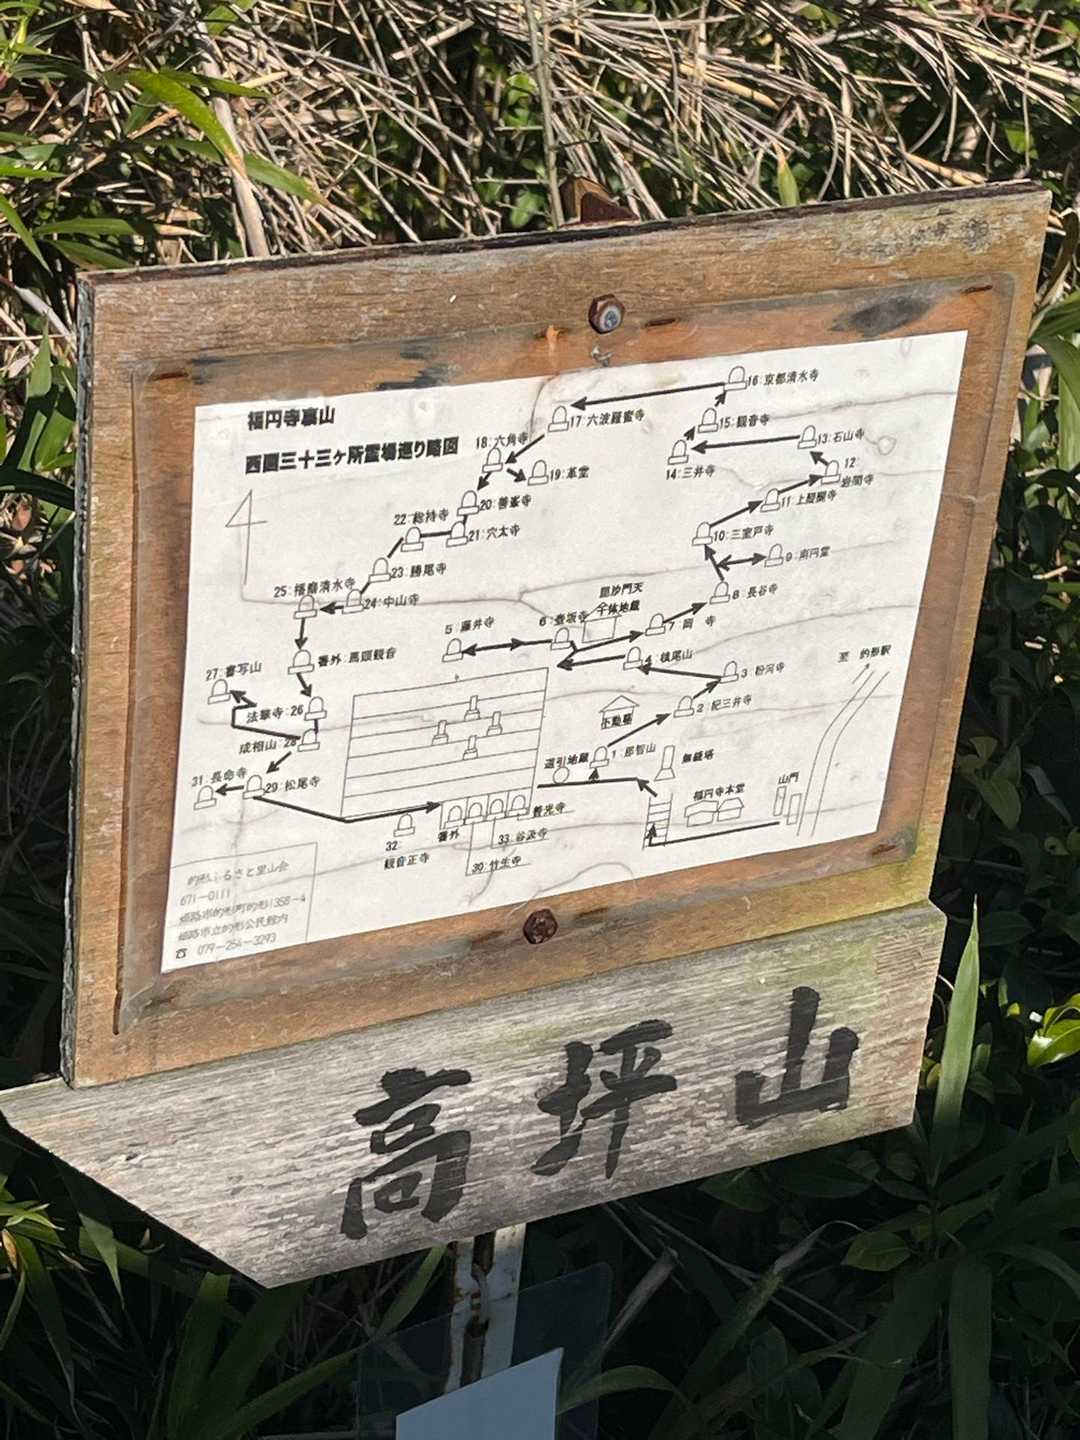 福円寺裏山
西国三十三ヶ所霊場巡り略図
16:京都清水寺
17:六波羅蜜寺
15:観音寺
18:六角寺
13:石山寺
14:三井寺
19:革堂
12
岩間寺
20:善峯寺
11:上醍醐寺
22:総持寺
21:穴太寺
10:三室戸寺
23:勝尾寺
9:南円堂
25:播磨清水寺
24:中山寺
8:長谷寺
毘沙門天
千体地蔵
5:藤井寺
6:壷坂寺
7:岡 寺
番外:馬頭観音
4:槙尾山
至 的形駅
27:書写山
3:粉河寺
法華寺:26
2:紀三井寺
不動尊
成相山:28
1:那智山
道引地蔵
無縫塔
31:長命寺
29:松尾寺
山門
福円寺本堂
善光寺
番外
32:
観音正寺
33:谷汲寺
30:竹生寺
的形ふるさと里山会
671-0111
姫路市的形町的形1358-4
姫路市立的形公民館内
☎ 079-254-3293
高坪山